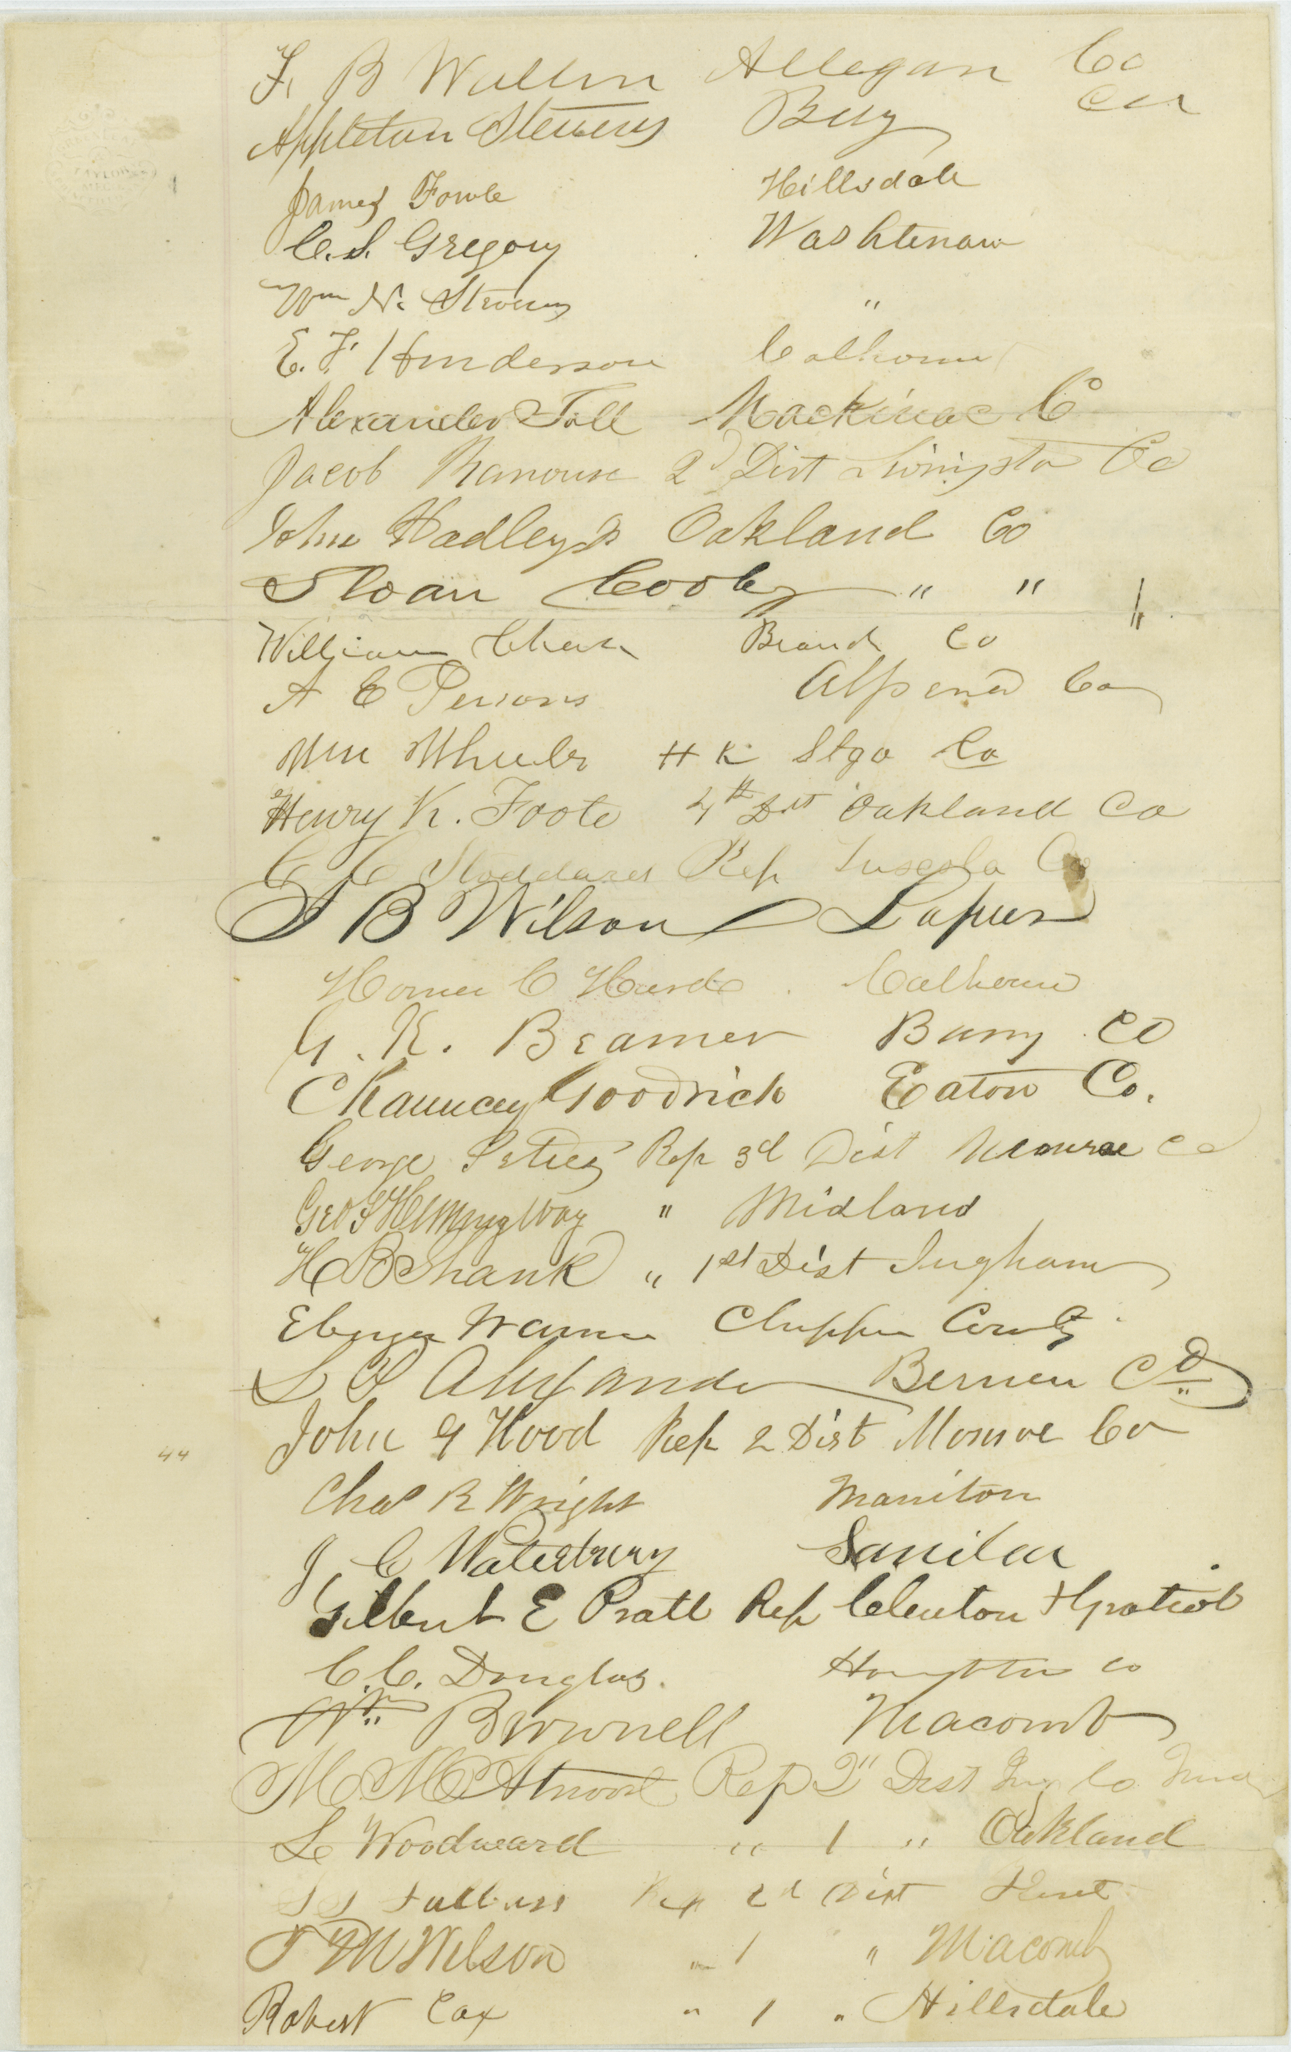 F. B Wallin Allegan Co
Appleton Stevens Bay Co
James Fowle Hillsdale
C. S. Gregory Washtenaw
Wm N. Stevens "
E. F. Henderson Calhoun
Alexander Toll Mackinac Co
Jacob Kanouse 2d Dist Livingston Co
John Hadley Jr Oakland Co
Sloan Cooley " "
William Chase Branch Co
A E Persons Alpena Co
Wm Wheeler Co
Henry K. Foote 4th Dist Oakland Co
Stoddard Rep Tuscola Co
S B Wilson Lapeer
Homer C Hurd Calhoun
G. K. Beamer Barry Co
Chauncey Goodrich Eaton Co.
George Peters Rep 3d Dist Monroe Co
Geo S Hemingway " Midland
H B Shank " 1st Dist Ingham
Ebenezer Warner Chippewa County
L P Alexander Berrien Co
John G Hood Rep 2 Dist Monroe Co
Chas R Wright Maniton
J. C Waterbury Sanilac
Gilbert E Pratt Rep Clinton & Gratiot
C. C. Douglas. Houghton Co
Wm Brownell Macomb
M. M. Atwood Rep 2" Dist Ing Co
L Woodward " 1 " Oakland
Rep 2d Dist
T M Wilson " 1 " Macomb
Robert Cox " 1 " Hillsdale
44